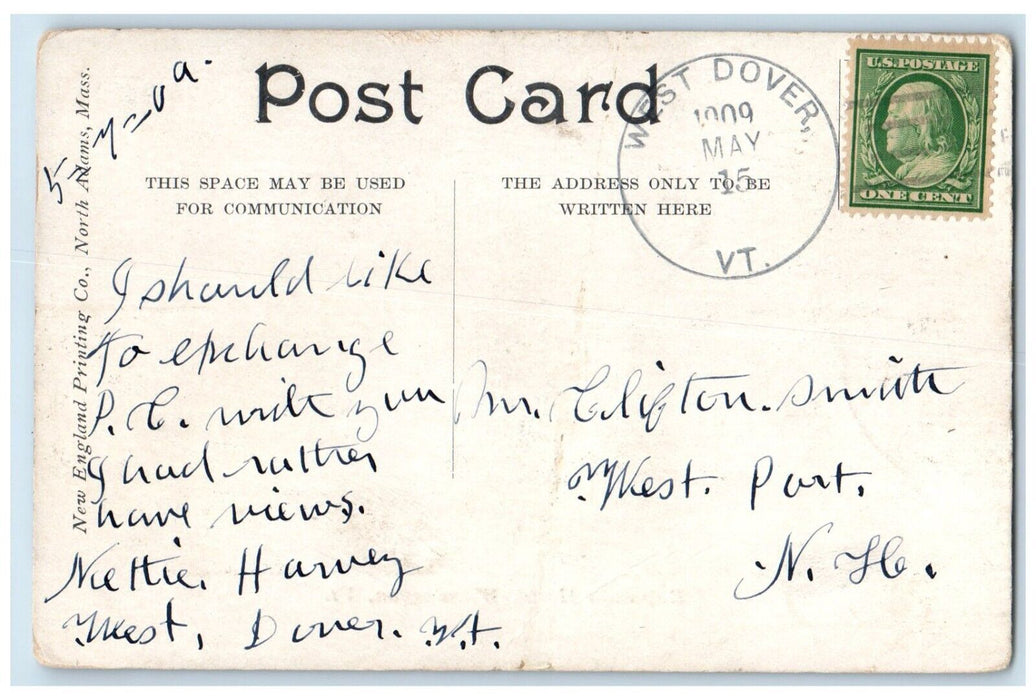 Post Card
THIS SPACE MAY BE USED
FOR COMMUNICATION
THE ADDRESS ONLY TO BE
WRITTEN HERE
WEST DOVER,
1909
MAY
15
VT.
U.S. POSTAGE
ONE CENT
New England Printing Co., North Adams, Mass.
I should like
to exchange
P. C. with you
I had rather
have views.
Nettie. Harvey
West, Dover. Vt.
Mr. Clifton. Smith
West. Port.
N. H.